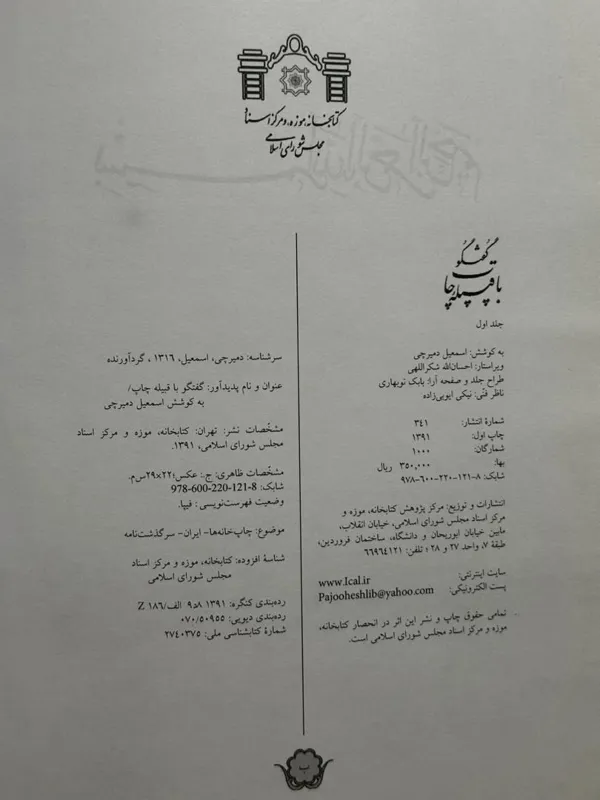 کتابخانه، موزه، و مرکز اسناد
مجلس شورای اسلامی
گفتگو
با قبیله چاپ
جلد اول
به کوشش: اسمعیل دمیرچی
ویراستار: احسان‌الله شکراللهی
طراح جلد و صفحه آرا: بابک نوبهاری
ناظر فنّی: نیکی ایوبی‌زاده
شمارۀ انتشار: ۳۴۱
چاپ اول: ۱۳۹۱
شمارگان: ۱۰۰۰
بها: ۳۵۰,۰۰۰ ریال
شابک: ۸-۱۲۱-۲۲۰-۶۰۰-۹۷۸
انتشارات و توزیع: مرکز پژوهش کتابخانه، موزه و
مرکز اسناد مجلس شورای اسلامی، خیابان انقلاب،
مابین خیابان ابوریحان و دانشگاه، ساختمان فروردین،
طبقۀ ۷، واحد ۲۷ و ۲۸؛ تلفن: ۶۶۹۶۴۱۲۱
سایت اینترنتی: www.Ical.ir
پست الکترونیکی: Pajooheshlib@yahoo.com
تمامی حقوق چاپ و نشر این اثر در انحصار کتابخانه،
موزه و مرکز اسناد مجلس شورای اسلامی است.
سرشناسه: دمیرچی، اسمعیل، ۱۳۱۶ ، گردآورنده
عنوان و نام پدیدآور: گفتگو با قبیله چاپ/
به کوشش اسمعیل دمیرچی
مشخّصات نشر: تهران: کتابخانه، موزه و مرکز اسناد
مجلس شورای اسلامی، ۱۳۹۱.
مشخّصات ظاهری: ج.: عکس؛ ۲۲×۲۹س‌م.
شابک: 978-600-220-121-8
وضعیت فهرست‌نویسی : فیپا.
موضوع: چاپ‌خانه‌ها- ایران- سرگذشت‌نامه
شناسۀ افزوده: کتابخانه، موزه و مرکز اسناد
مجلس شورای اسلامی
رده‌بندی کنگره: ۱۳۹۱ ۸د۹ الف/۱۸۶ Z
رده‌بندی دیویی: ۰۷۰/۵۰۹۵۵
شمارۀ کتابشناسی ملی: ۲۷۴۰۳۷۵
ب